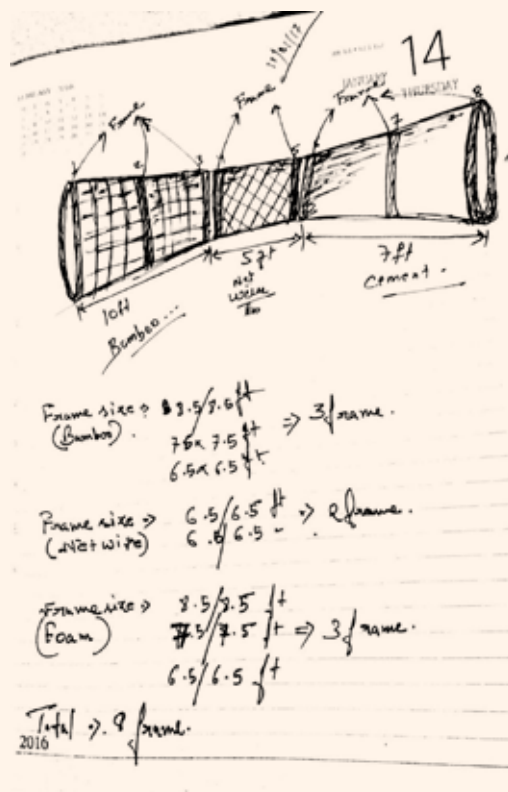 14
JANUARY
THURSDAY
Frame
Frame
Frame
1
2
3
5
7
8
10ft
5 ft
7ft
Bamboo...
Net
Cement.
Frame size => 8.5/8.5 ft
(Bamboo).
7.5x 7.5 ft => 3 frame.
6.5x 6.5 ft.
Frame size => 6.5/6.5 ft => 2 frame.
(Net wire) 6.5/6.5 "
Frame size => 8.5/8.5 ft
(Foam) 7.5/7.5 ft => 3 frame.
6.5/6.5 ft
Total => 8 frame.
2016